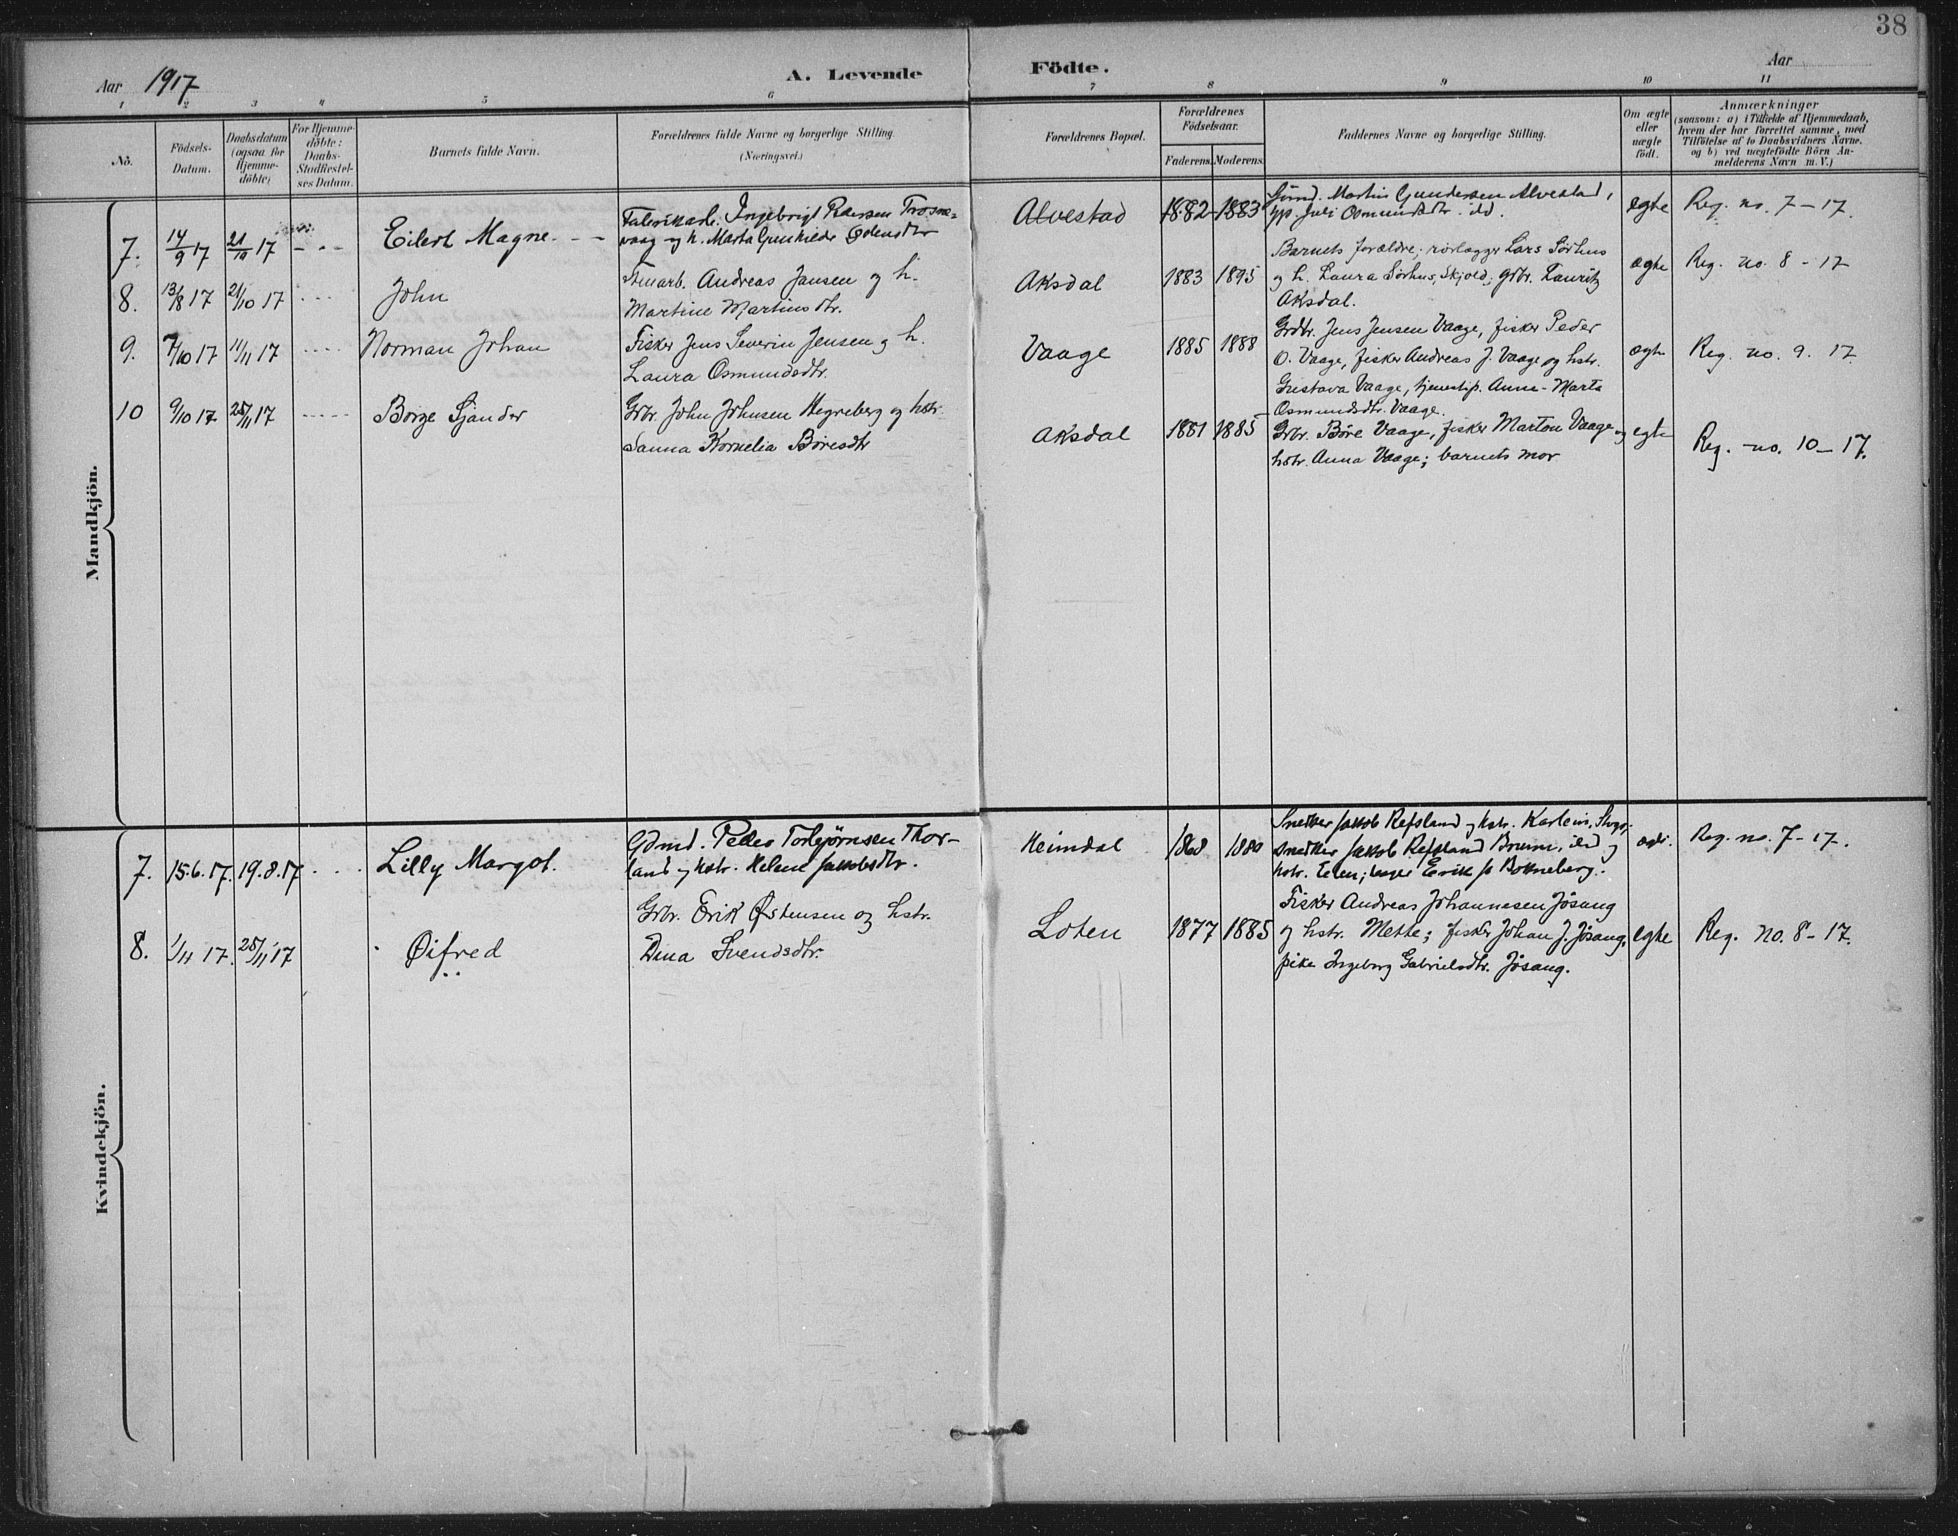 38
Aar 1917 A. Levende Födte. Aar
1 2 3 4 5 6 7 8 9 10 11
No.
Födsels-
Datum.
Daabsdatum
(ogsaa for
Hjemme-
döbte)
For Hjemme-
döbte:
Daabs-
Stadfæstel-
ses Datum.
Barnets fulde Navn.
Forældrenes fulde Navne og borgerlige Stilling.
(Næringsvei.)
Forældrenes Bopæl.
Forældrenes
Födselsaar.
Faderens. Moderens.
Faddernes Navne og borgerlige Stilling.
Om ægte
eller
uægte
födt.
Anmærkninger
(saasom: a) i Tilfælde af Hjemmedaab,
hvem der har forrettet samme, med
Tilföielse af to Daabsvidners Navne,
og b) ved uægtefödte Börn An-
melderens Navn m. V.)
Mandkjön.
7. 14/9 17 21/10 17 Eilert Magne.
Fabrikkarb. Ingebrigt
vaag og h. Marta
Alvestad 1882 1883
Martin Gundersen Alvestad,
Juli Osmundsdtr. ibd.
egte Reg. no. 7-17.
8. 13/8 17 21/10 17 John
Andreas Jansen og h.
Martine Martinsdtr.
Aksdal 1883 1895
Barnets forældre; rørlægger Lars Sørhus
og h. Laura Sørhus, Skjold; grbr. Lauritz
Aksdal.
ægte Reg. no. 8-17
9. 7/10 17 11/11 17 Norman Johan
Fisker Jens Severin Jensen og h.
Laura Osmundsdtr.
Vaage 1885 1888
Grdbr. Jens Jensen Vaage, fisker Peder
O. Vaage, fisker Andreas J. Vaage og hstr.
Gustava Vaage, tjenestp. Anna-Marta
Osmundsdtr. Vaage.
ægte Reg. no. 9. 17
10 9/10 17 25/11 17 Borge Sjander
Grbr. John Johnsen Hegreberg og hstr.
Sanna Kornelia Boresdtr
Aksdal 1881 1885
Grbr. Böre Vaage, fisker Marton Vaage og
hstr. Anna Vaage; barnets mor
egte Reg. no. 10-17.
Kvindekjön.
7. 15.6.17. 19.8.17 Lilly Margot.
Gdmd. Peder Torbjørnsen Thor-
land og hstr. Helene Jakobsdtr.
Heimdal 1868 1880
Snekker Jakob Refsland og hstr. Karlein,
snekker Jakob Refsland Bruim, ibd og
hstr. Elen; Erik Bokneberg.
Reg. no. 7-17.
8. 1/11 17. 25/11 17 Øifred
Grbr. Erik Østensen og hstr.
Dina Svendsdtr.
Loten 1877 1885
Fisker Andreas Johannesen Jøsang
og hstr. Mette; fisker Johan J. Jøsang,
pike Ingeborg Gabrielsdtr. Jøsang.
egte Reg. No. 8-17.